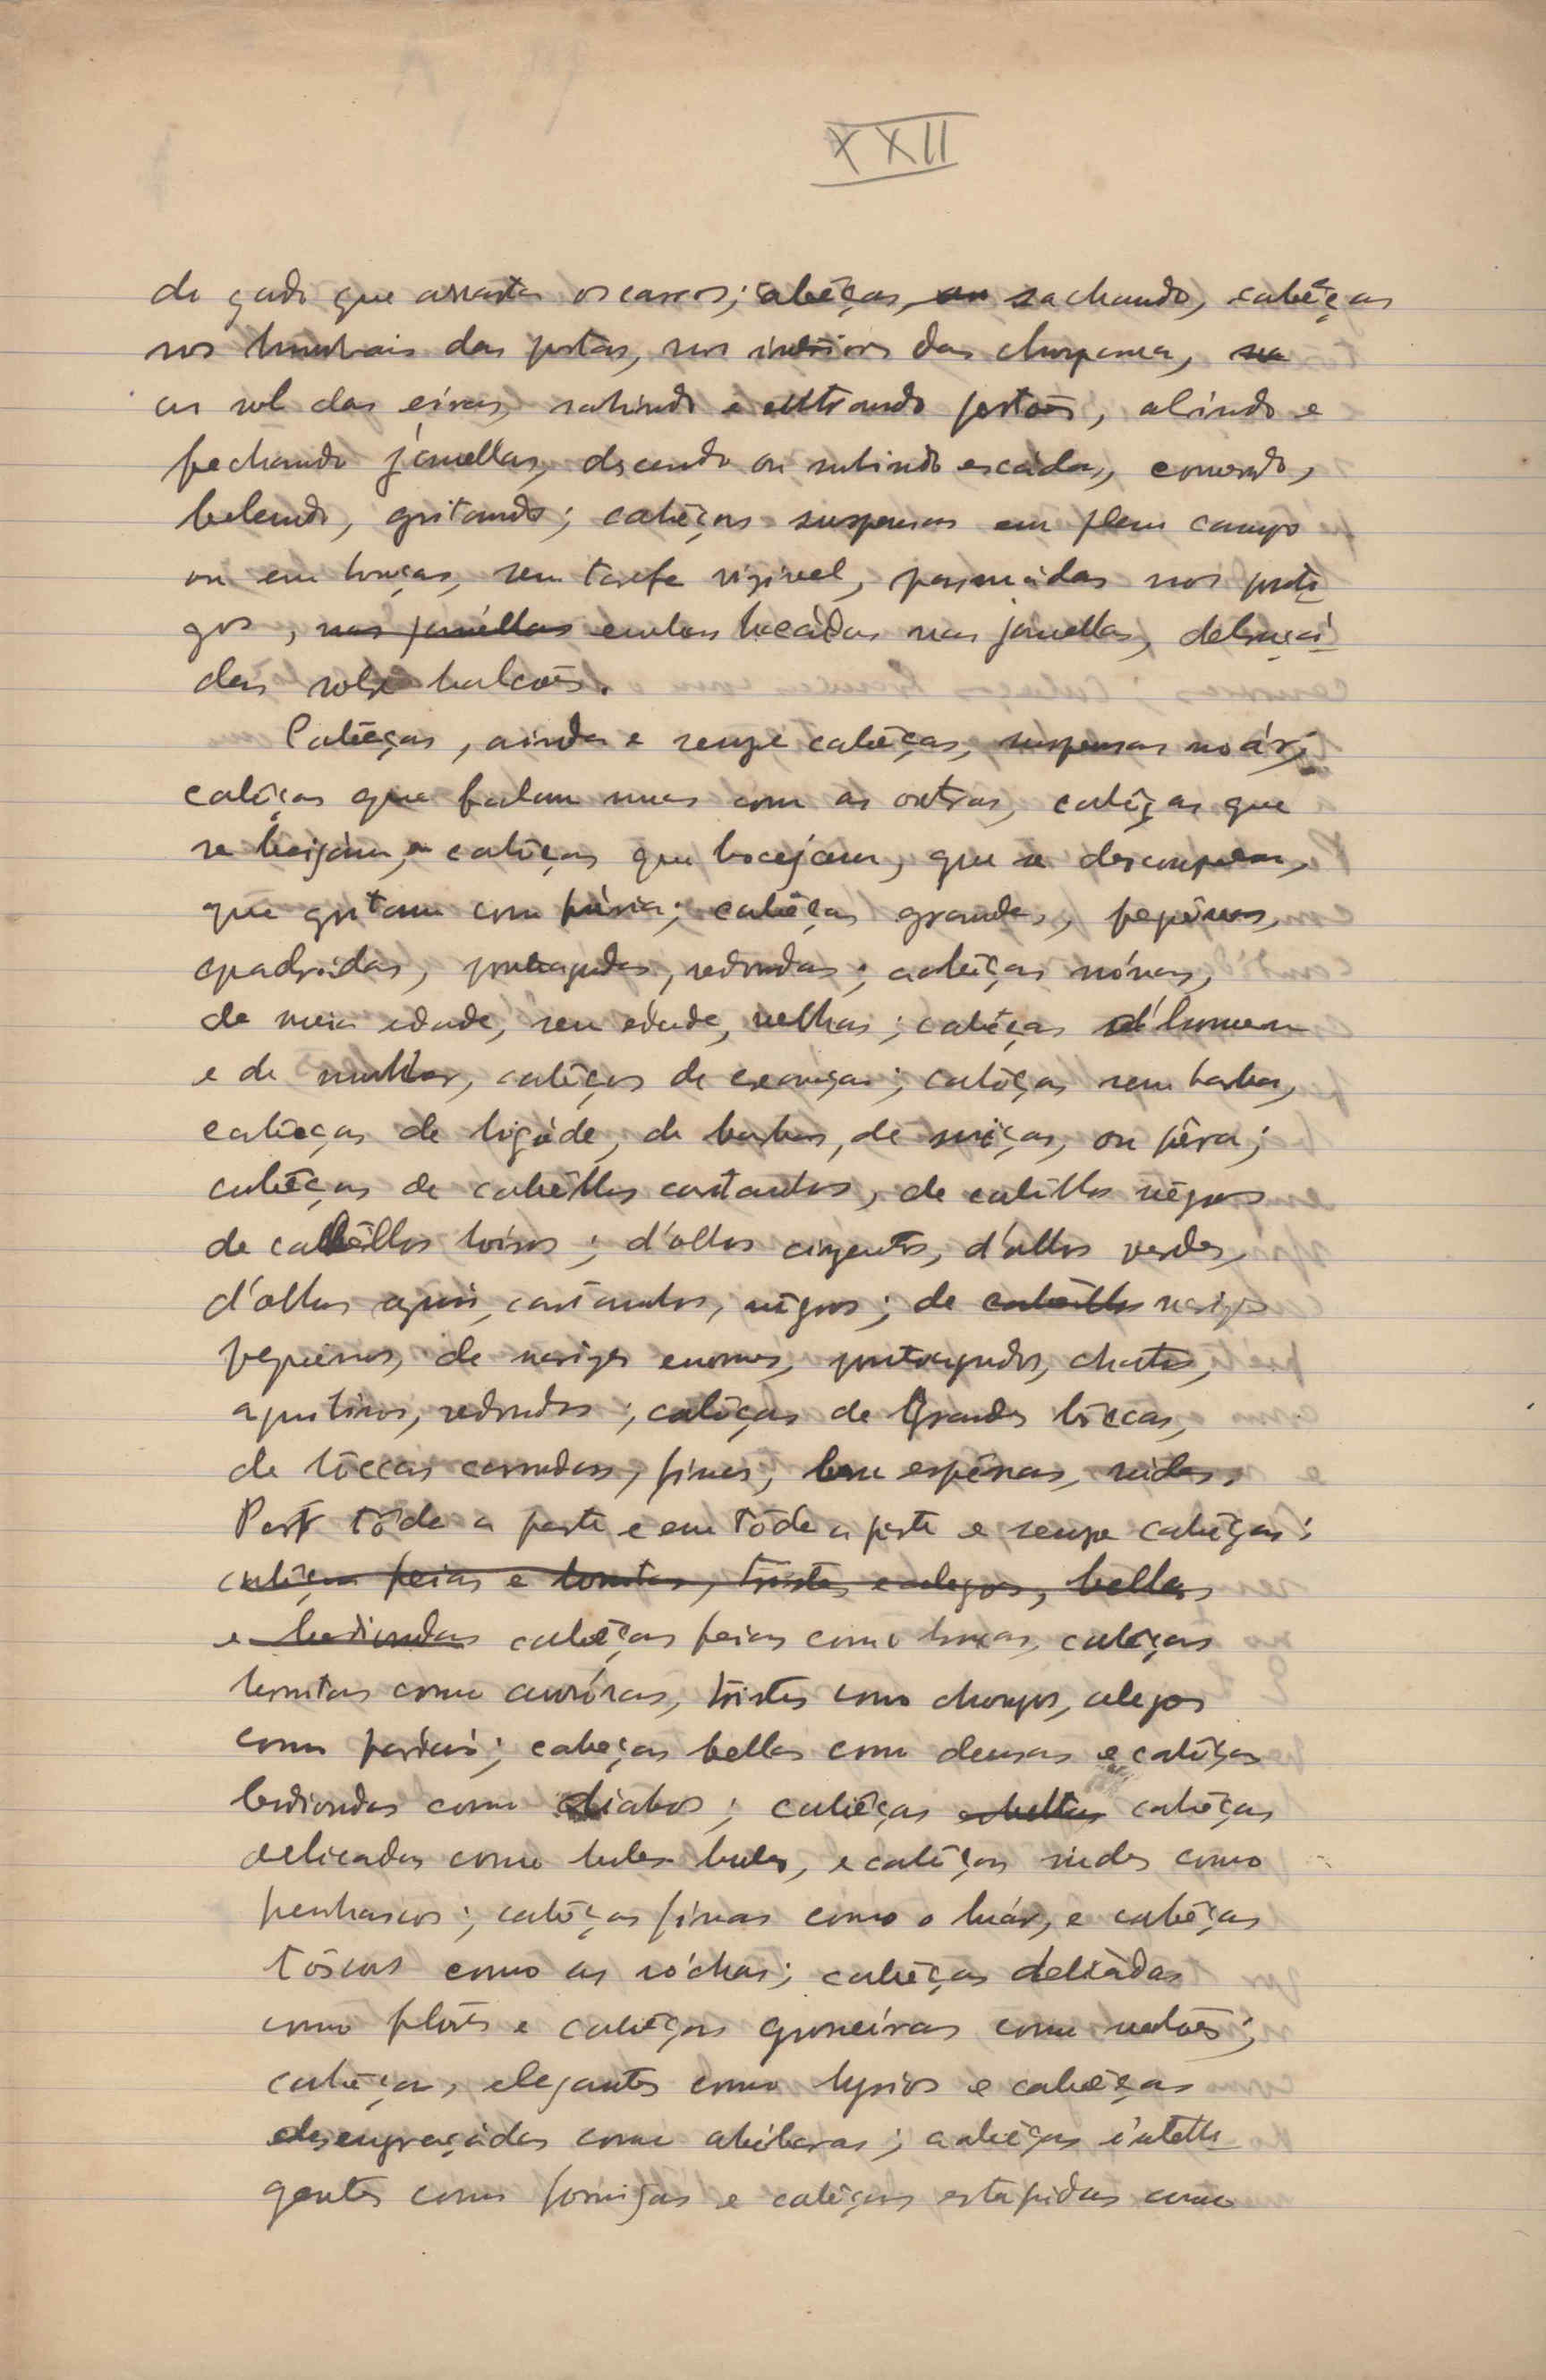 XXII
do gado que arrasta os carros; cabêças, sachando, cabêças
nos humbrais das portas, nos interiores das choupanas,
ao sol das eiras, sahindo e entrando portões, abrindo e
fechando janellas, descendo ou subindo escádas, comendo,
bebendo, gritando; cabêças suspensas em pleno campo
ou em bouças, sem tarefa vizivel, pasmádas nos posti
gos, nas janéllas embasbacádas nas janellas, debruçá
das sobre balcões.
Cabêças, ainda e sempre cabêças, suspensas no ár;
cabêças que falam umas com as outras, cabêças que
se beijam, e cabêças que bocejam, que se descompõem,
que gritam com fúria; cabêças grandes, pequenas,
quadradas, ponteagudas, redondas; cabêças nóvas,
de meia edade, sem edade, velhas; cabêças d'homem
e de mulher, cabêças de creanças; cabêças sem barba,
cabeças de bigóde, de barbas, de suiças, ou pêra;
cabêças de cabêllos castanhos, de cabêllos négros
de cabêllos loiros; d'olhos cinzentos, d'olhos verdes,
d'olhos azuis, castanhos, négros; de cabêllos narizes
pequenos, de narizes enormes, ponteagudos, chatos,
aquilinos, redondos; cabêças de grandes bôccas,
de bôccas carnudas, finas, bem rudes.
Por tôda a parte e em tôda a parte e sempre cabêças:
cabêças feias e bonitas, tristes e alegres, bellas
e hediondas cabêças feias como bruxas, cabêças
bonitas como auróras, tristes como choupos, alegres
como pardais; cabeças bellas como deusas e cabêças
hediondas como diabos; cabêças e bellas cabêças
delicadas como bules-bules, e cabêças rudes como
penhascos; cabêças finas como o luár, e cabêças
tôscas como as róchas; cabêças deliádas
como flores e cabêças grosseiras como
cabêças elegantes como lyrios e cabêças
desengraçádas como abóboras; cabêças intelli
gentes como formigas e cabêças estúpidas como